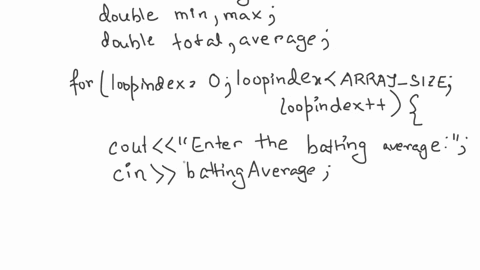 double min, max;
double total, average;
for(loopindex= 0; loopindex<ARRAY_SIZE;
loopindex++) {
cout<<"Enter the batting average:";
cin>> battingAverage;